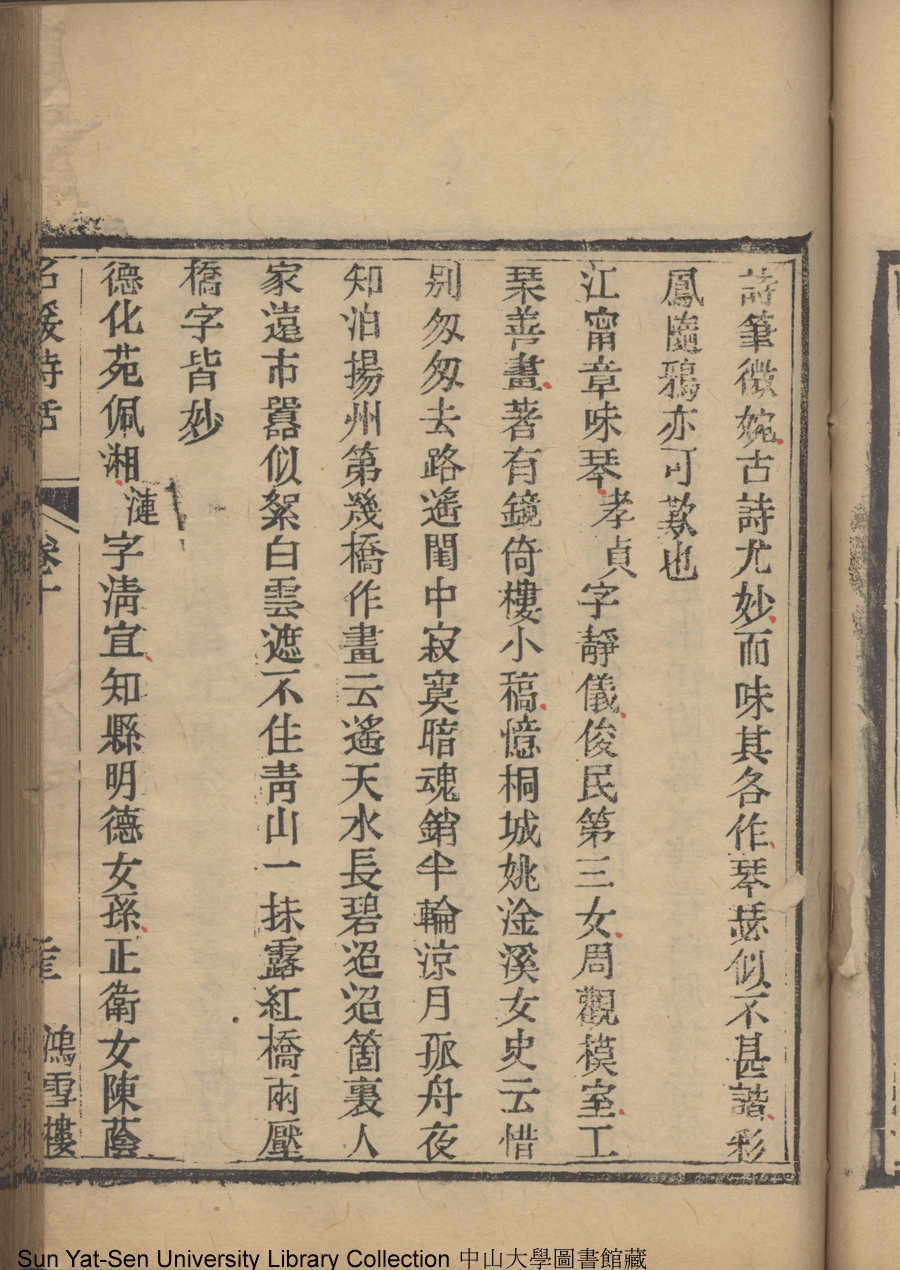 詩筆微婉古詩尤妙而味其各作琴瑟似不甚諧彩
鳳隨鴉亦可歎也
江甯章味琴孝貞字靜儀俊民第三女周觀模室工
琹善畫著有鏡倚樓小稿憶桐城姚淦溪女史云惜
別匆匆去路遙閨中寂寞暗魂銷半輪涼月孤舟夜
知泊揚州第幾橋作畫云遙天水長碧迢迢箇裏人
家遠市囂似絮白雲遮不住青山一抹露紅橋兩壓
橋字皆妙
德化苑佩湘漣字清宜知縣明德女孫正衛女陳蔭
名媛詩話 卷十 鴻雪樓
Sun Yat-Sen University Library Collection 中山大學圖書館藏